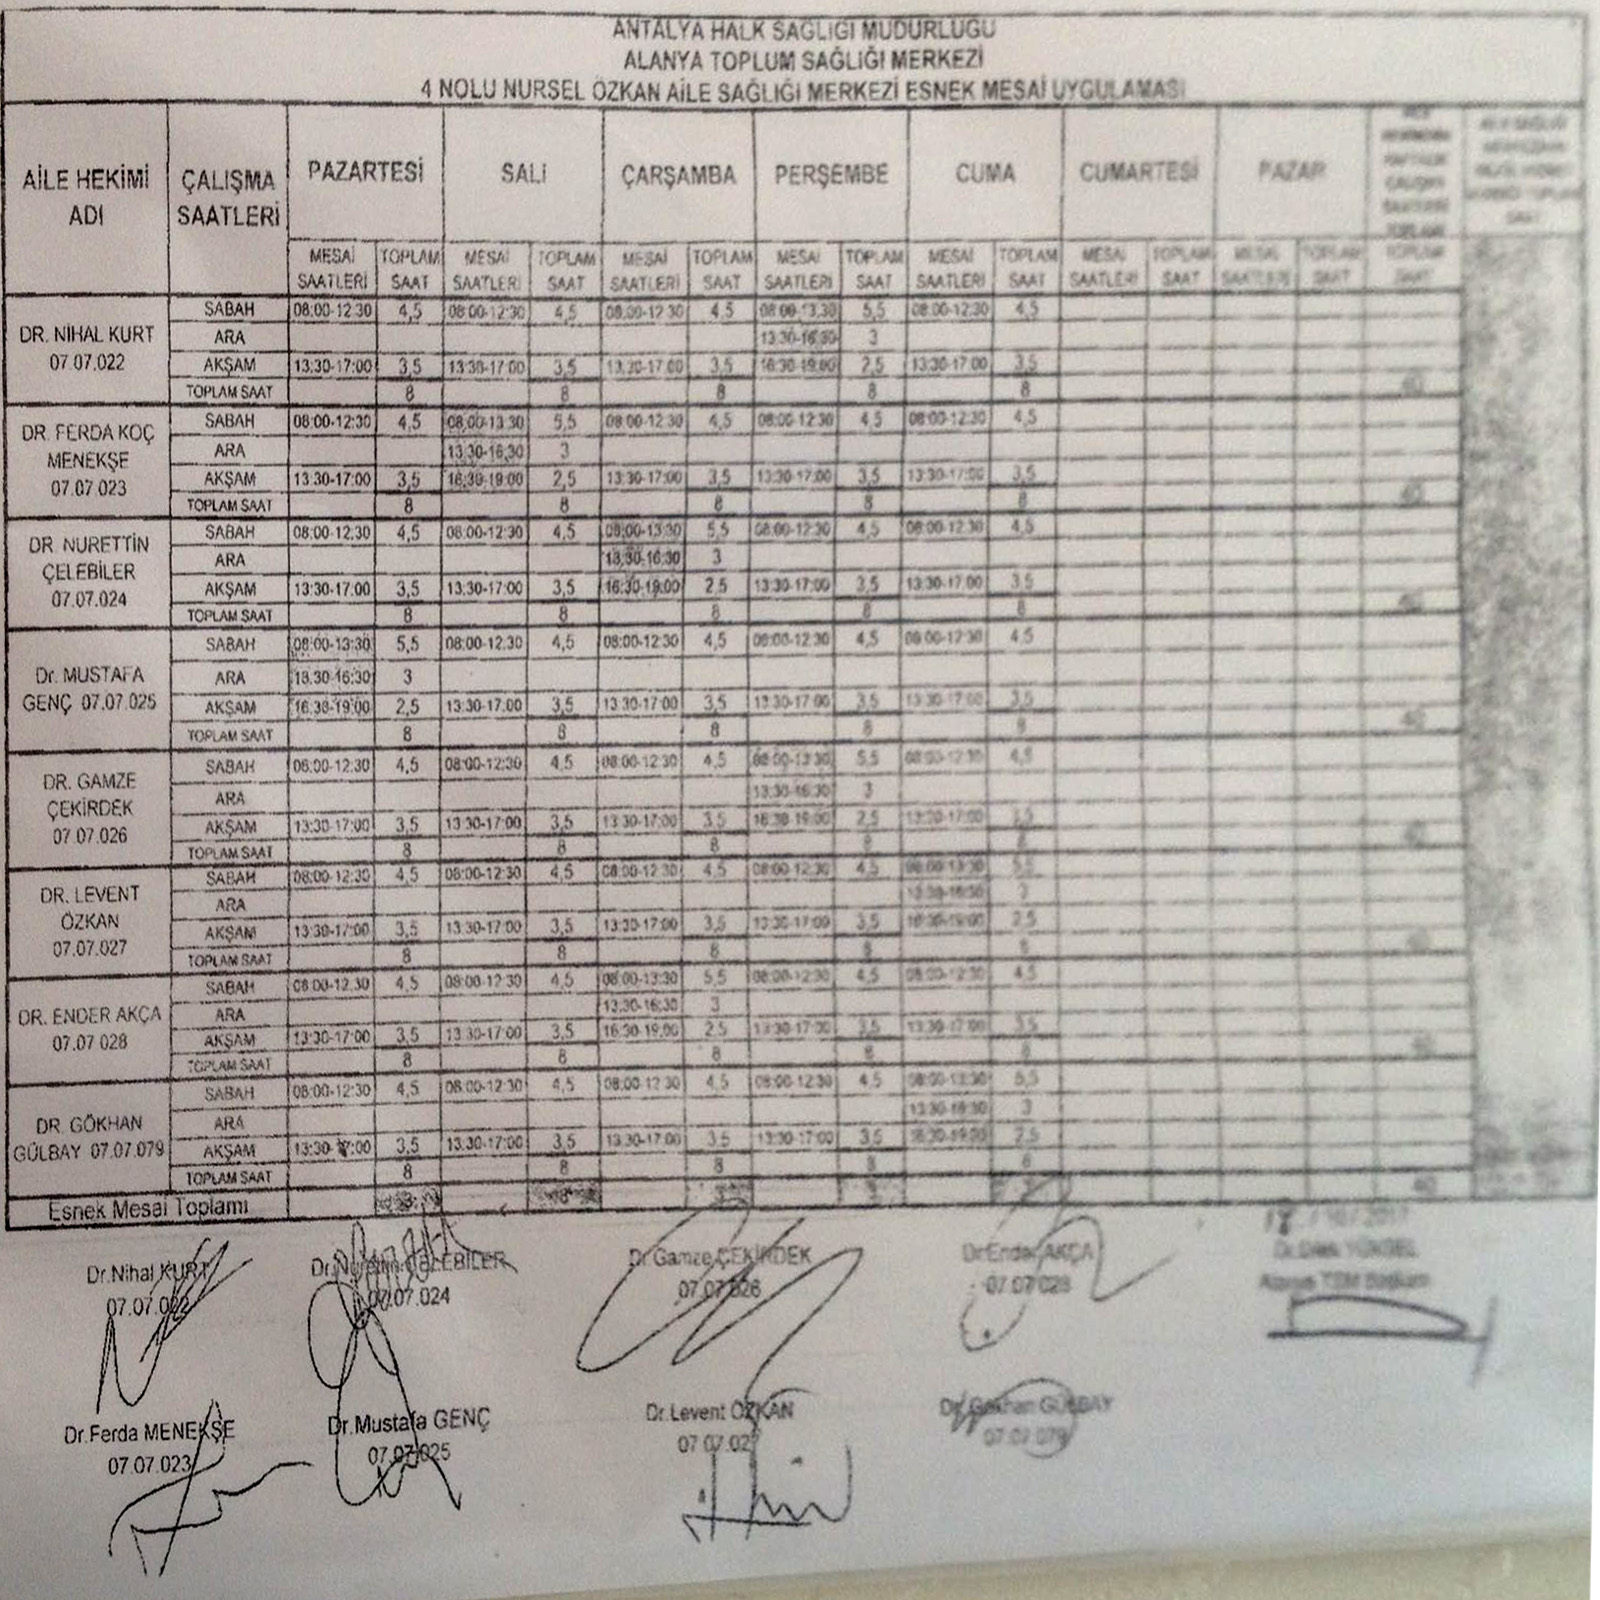 ANTALYA HALK SAĞLIĞI MÜDÜRLÜĞÜ
ALANYA TOPLUM SAĞLIĞI MERKEZİ
4 NOLU NURSEL ÖZKAN AİLE SAĞLIĞI MERKEZİ ESNEK MESAİ UYGULAMASI
AİLE HEKİMİ ADI ÇALIŞMA SAATLERİ PAZARTESİ SALI ÇARŞAMBA PERŞEMBE CUMA CUMARTESİ PAZAR
MESAİ SAATLERİ TOPLAM SAAT MESAİ SAATLERİ TOPLAM SAAT MESAİ SAATLERİ TOPLAM SAAT MESAİ SAATLERİ TOPLAM SAAT MESAİ SAATLERİ TOPLAM SAAT MESAİ SAATLERİ TOPLAM SAAT MESAİ SAATLERİ TOPLAM SAAT
DR. NİHAL KURT 07.07.022
SABAH 08:00-12:30 4,5 08:00-12:30 4,5 08:00-12:30 4,5 08:00-13:30 5,5 08:00-12:30 4,5
ARA 13:30-16:30 3
AKŞAM 13:30-17:00 3,5 13:30-17:00 3,5 13:30-17:00 3,5 16:30-19:00 2,5 13:30-17:00 3,5
TOPLAM SAAT 8 8 8 8 8 40
DR. FERDA KOÇ MENEKŞE 07.07.023
SABAH 08:00-12:30 4,5 08:00-13:30 5,5 08:00-12:30 4,5 08:00-12:30 4,5 08:00-12:30 4,5
ARA 13:30-16:30 3
AKŞAM 13:30-17:00 3,5 16:30-19:00 2,5 13:30-17:00 3,5 13:30-17:00 3,5 13:30-17:00 3,5
TOPLAM SAAT 8 8 8 8 8 40
DR. NURETTİN ÇELEBİLER 07.07.024
SABAH 08:00-12:30 4,5 08:00-12:30 4,5 08:00-13:30 5,5 08:00-12:30 4,5 08:00-12:30 4,5
ARA 13:30-16:30 3
AKŞAM 13:30-17:00 3,5 13:30-17:00 3,5 16:30-19:00 2,5 13:30-17:00 3,5 13:30-17:00 3,5
TOPLAM SAAT 8 8 8 8 8 40
Dr. MUSTAFA GENÇ 07.07.025
SABAH 08:00-13:30 5,5 08:00-12:30 4,5 08:00-12:30 4,5 08:00-12:30 4,5 08:00-12:30 4,5
ARA 13:30-16:30 3
AKŞAM 16:30-19:00 2,5 13:30-17:00 3,5 13:30-17:00 3,5 13:30-17:00 3,5 13:30-17:00 3,5
TOPLAM SAAT 8 8 8 8 8 40
DR. GAMZE ÇEKİRDEK 07.07.026
SABAH 08:00-12:30 4,5 08:00-12:30 4,5 08:00-12:30 4,5 08:00-13:30 5,5 08:00-12:30 4,5
ARA 13:30-16:30 3
AKŞAM 13:30-17:00 3,5 13:30-17:00 3,5 13:30-17:00 3,5 16:30-19:00 2,5 13:30-17:00 3,5
TOPLAM SAAT 8 8 8 8 8 40
DR. LEVENT ÖZKAN 07.07.027
SABAH 08:00-12:30 4,5 08:00-12:30 4,5 08:00-12:30 4,5 08:00-12:30 4,5 08:00-13:30 5,5
ARA 13:30-16:30 3
AKŞAM 13:30-17:00 3,5 13:30-17:00 3,5 13:30-17:00 3,5 13:30-17:00 3,5 16:30-19:00 2,5
TOPLAM SAAT 8 8 8 8 8 40
DR. ENDER AKÇA 07.07.028
SABAH 08:00-12:30 4,5 08:00-12:30 4,5 08:00-13:30 5,5 08:00-12:30 4,5 08:00-12:30 4,5
ARA 13:30-16:30 3
AKŞAM 13:30-17:00 3,5 13:30-17:00 3,5 16:30-19:00 2,5 13:30-17:00 3,5 13:30-17:00 3,5
TOPLAM SAAT 8 8 8 8 8 40
DR. GÖKHAN GÜLBAY 07.07.079
SABAH 08:00-12:30 4,5 08:00-12:30 4,5 08:00-12:30 4,5 08:00-12:30 4,5 08:00-13:30 5,5
ARA 13:30-16:30 3
AKŞAM 13:30-17:00 3,5 13:30-17:00 3,5 13:30-17:00 3,5 13:30-17:00 3,5 16:30-19:00 2,5
TOPLAM SAAT 8 8 8 8 8 40
Esnek Mesai Toplamı
Dr.Nihal KURT Dr.Nurettin ÇELEBİLER Dr.Gamze ÇEKİRDEK Dr.Ender AKÇA Dr.Dilek YÜKSEL
07.07.022 07.07.024 07.07.026 07.07.028 Alanya TSM Başkanı
Dr.Ferda MENEKŞE Dr.Mustafa GENÇ Dr.Levent ÖZKAN Dr.Gökhan GÜLBAY
07.07.023 07.07.025 07.07.027 07.07.079